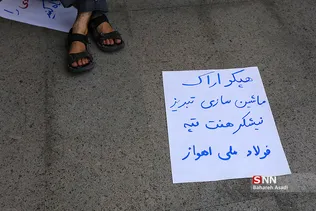 هپکو اراک
ماشین سازی تبریز
نیشکر هفت تپه
فولاد ملی اهواز
SNN
Bahareh Asadi